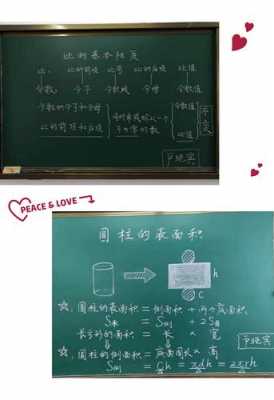 比的基本性质
比： 比的前项 比号 比的后项 比值
分数： 分子 分数线 分母 分数值
分数的分子和分母
比的前项和后项
同时乘或除以一个
不为零的数
分数值
比值
不变
PEACE & LOVE
圆柱的表面积
h
C
☆、圆柱的表面积 = 侧面积 + 两个底面积
S表 = S侧 + 2S底
长方形的面积 = 长 × 宽
☆、圆柱的侧面积 = 底面周长 × 高
S侧 = Ch = πdh = 2πrh